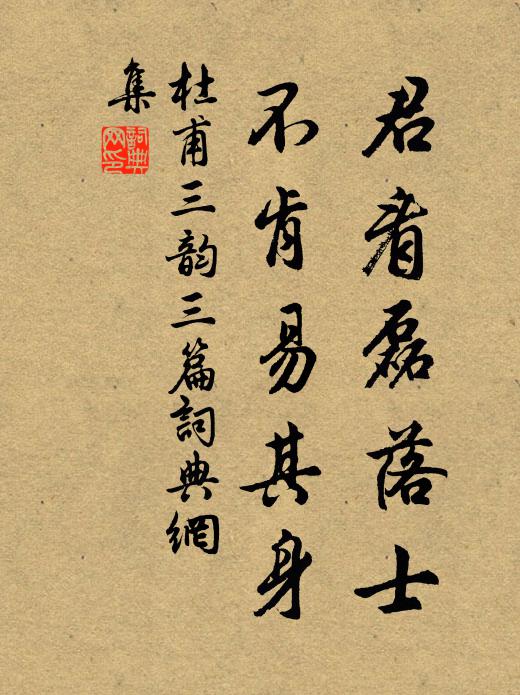 君看磊落士
不肯易其身
杜甫三韵三篇詞典網
集
詞典
网印